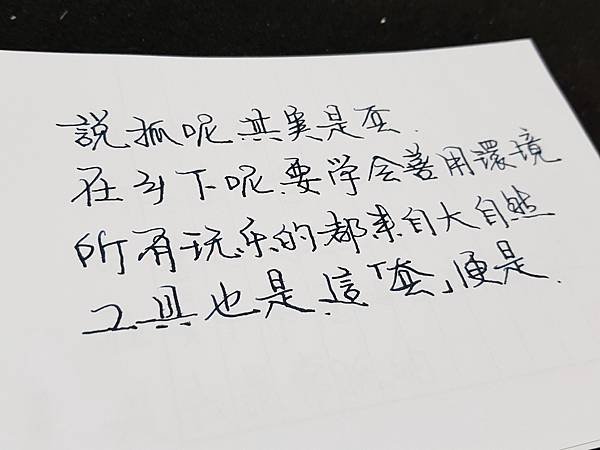 説孤呢其实是盃.
在斗下呢要学会善用環境
所有玩乐的都来自大自然
工具也是.這「套」便是.